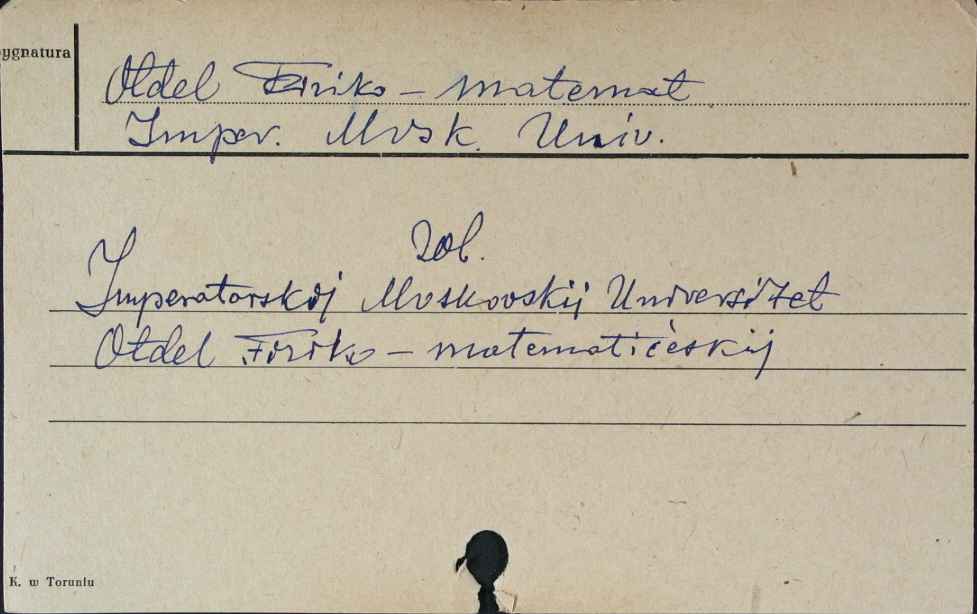 ygnatura
Otdel Fiziko - matemat
Imper. Mosk. Univ.
zob.
Imperatorskij Moskovskij Universitet
Otdel Fiziko - matematičeskij
K. w Toruniu